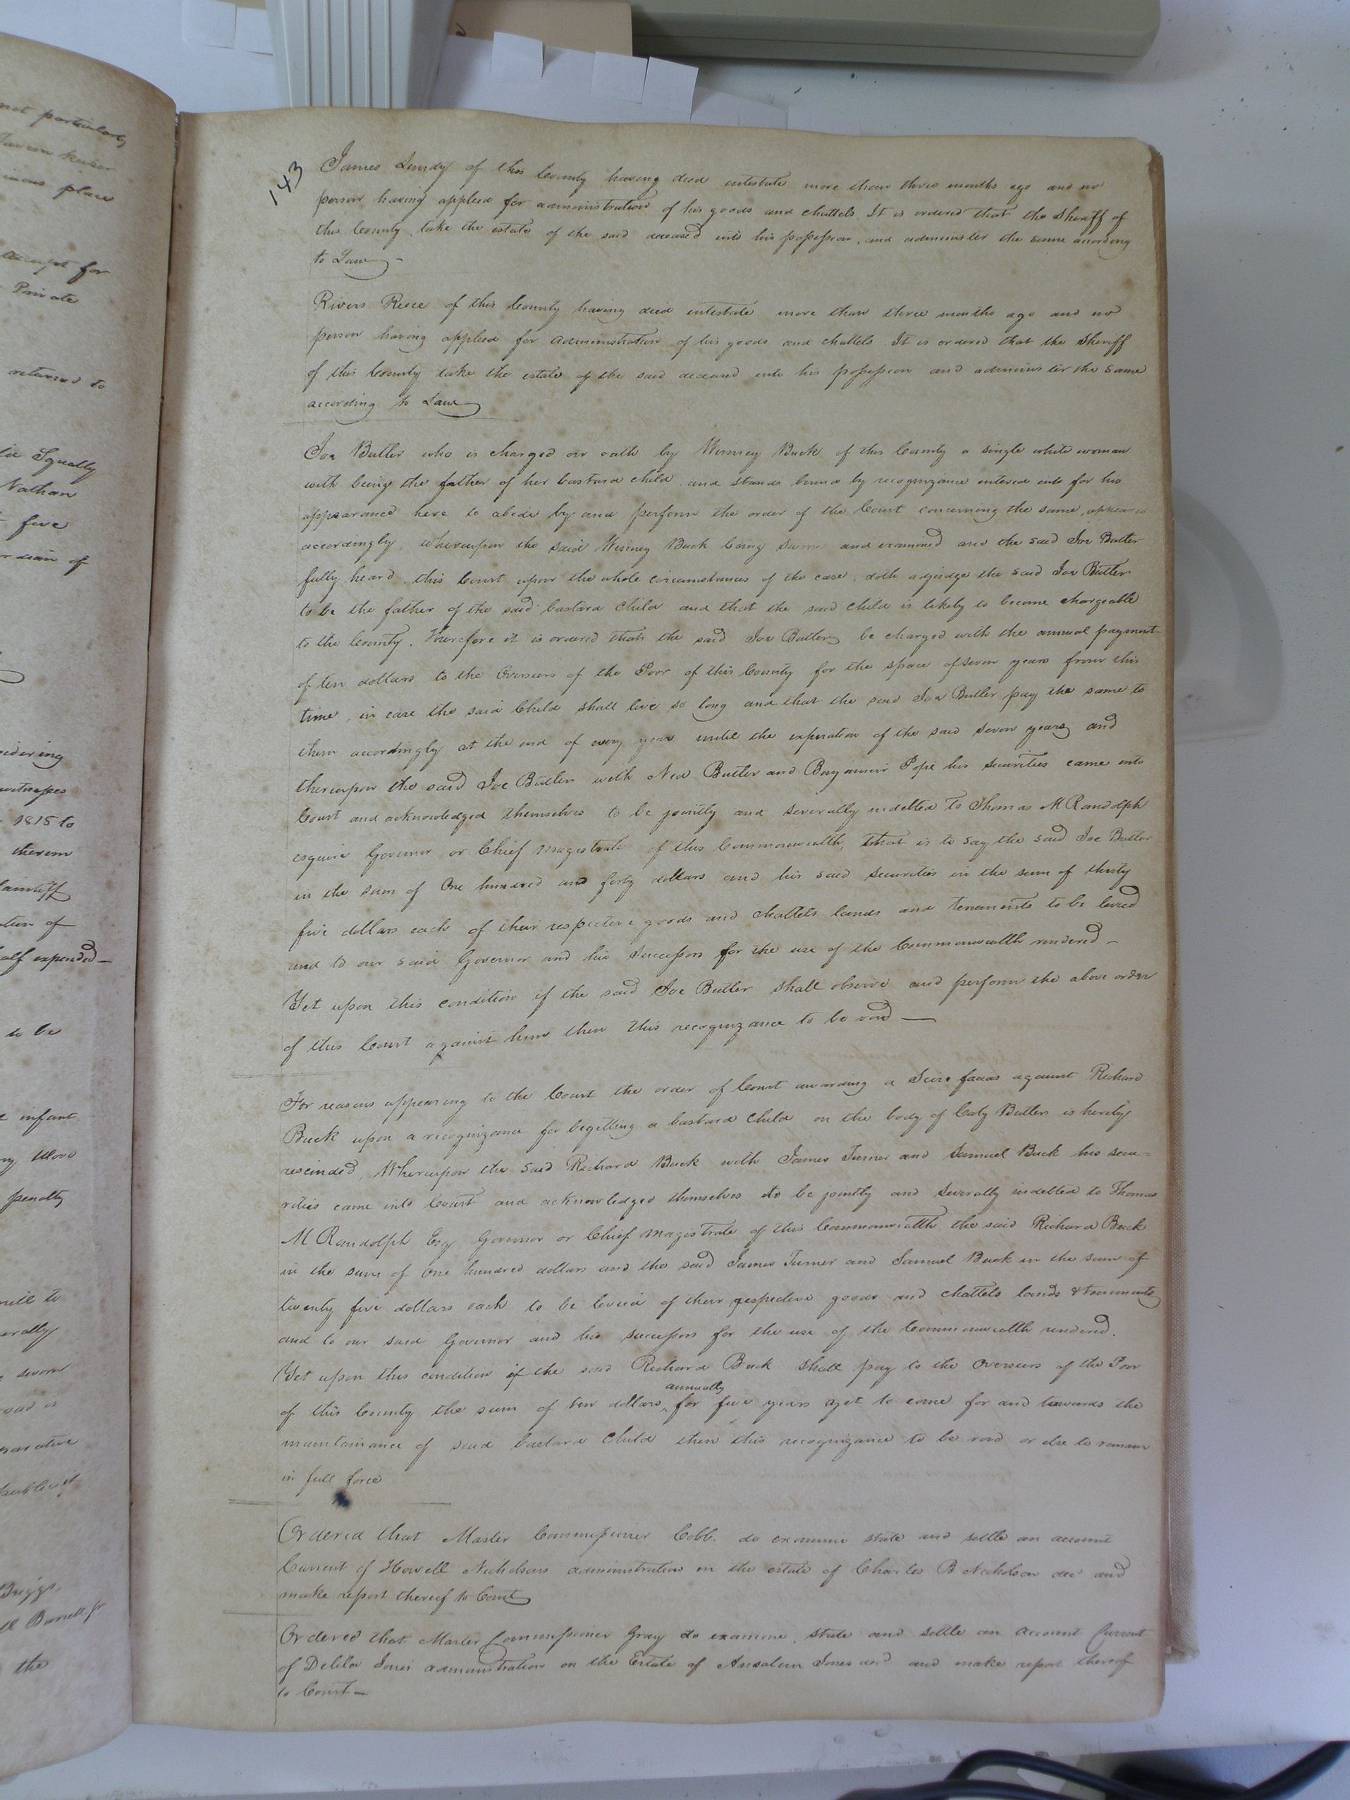 not particularly
place
for
Private
returned to
Equally
Nathan
five
of
1815 to
therein
plaintiff
of
half expended —
to be
infant
penalty
will to
sworn
Briggs
the
143
James Lundy of this County having died intestate more than three months ago and no
person having applied for administration of his goods and chattels It is ordered that the Sheriff of
this County take the estate of the said deceased into his possession, and administer the same according
to Law —
Rivers Reese of this County having died intestate more than three months ago and no
person having applied for administration of his goods and chattels It is ordered that the Sheriff
of this County take the estate of the said deceased into his possession and administer the same
according to Law
Joe Butler who is charged on oath by Winney Buck of this County a single white woman
with being the father of her bastard child and stands bound by recognizance entered into for his
appearance here to abide by and perform the order of the Court concerning the same, appeared
accordingly, whereupon the said Winney Buck being sworn and examined and the said Joe Butler
fully heard this Court upon the whole circumstances of the case, doth adjudge the said Joe Butler
to be the father of the said bastard child and that the said child is likely to become chargeable
to the County. Therefore it is ordered that the said Joe Butler be charged with the annual payment
of ten dollars to the Overseers of the Poor of this County for the space of seven years from this
time, in case the said Child shall live so long and that the said Joe Butler pay the same to
them accordingly at the end of every year until the expiration of the said seven years and
thereupon the said Joe Butler with Ned Butler and Benjamin Pope his securities came into
Court and acknowledged themselves to be jointly and severally indebted to Thomas M Randolph
esquire Governor or Chief Magistrate of this Commonwealth, that is to say the said Joe Butler
in the sum of One hundred and forty dollars and his said securities in the sum of thirty
five dollars each of their respective goods and chattels lands and tenements to be levied
and to our said Governor and his successors for the use of the Commonwealth rendered —
Yet upon this condition if the said Joe Butler shall observe and perform the above order
of this Court against him then this recognizance to be void —
For reasons appearing to the Court the order of Court awarding a Scire facias against Richard
Buck upon a recognizance for begetting a bastard child on the body of Caty Butler is hereby
rescinded, Whereupon the said Richard Buck with James Turner and Samuel Buck his secu-
rities came into Court and acknowledged themselves to be jointly and severally indebted to Thomas
M Randolph Esq Governor or Chief Magistrate of this Commonwealth the said Richard Buck
in the sum of One hundred dollars and the said James Turner and Samuel Buck in the sum of
twenty five dollars each to be levied of their respective goods and chattels lands & tenements
and to our said Governor and his successors for the use of the Commonwealth rendered.
Yet upon this condition if the said Richard Buck shall pay to the Overseers of the Poor
annually
of this County the sum of ten dollars ‸ for five years yet to come for and towards the
maintainance of said bastard child then this recognizance to be void or else to remain
in full force
Ordered that Master Commissioner Cobb. do examine state and settle an account
Current of Howell Nicholsons administration on the estate of Charles B Nicholson decd and
make report thereof to Court
Ordered that Master Commissioner Gray do examine, state and settle an Account Current
of Delila Jones administration on the Estate of Ansalem Jones decd and make report thereof
to Court —